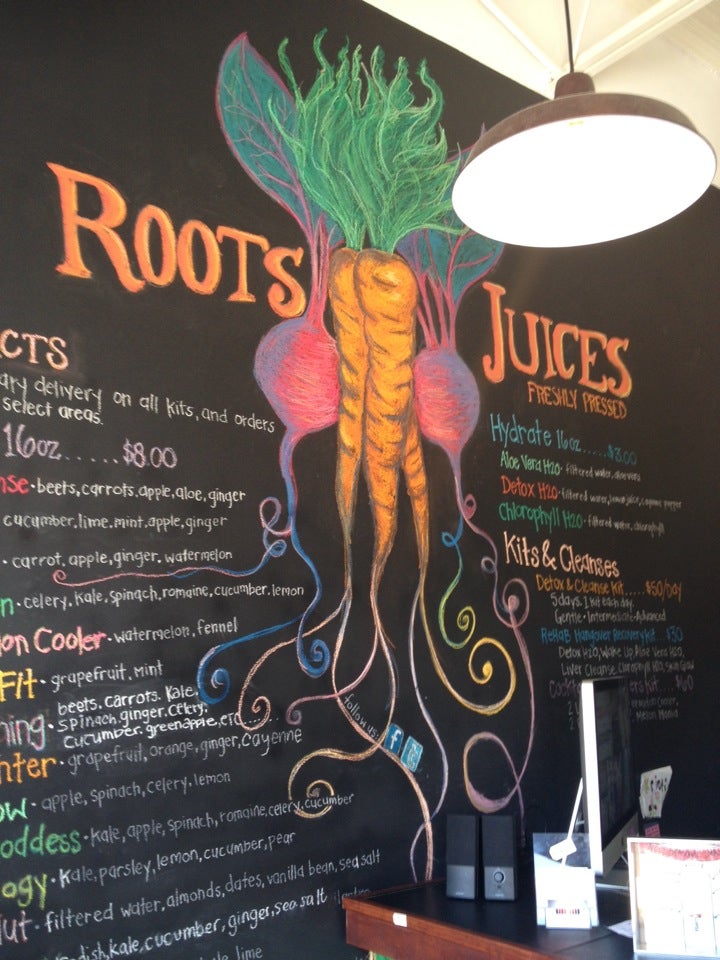 ROOTS
JUICES
FRESHLY PRESSED
CTS
ary delivery on all kits, and orders
select areas.
16oz......$8.00
nse • beets, carrots, apple, aloe, ginger
cucumber, lime, mint, apple, ginger
• carrot, apple, ginger, watermelon
n • celery, kale, spinach, romaine, cucumber, lemon
on Cooler • watermelon, fennel
Fit • grapefruit, mint
beets. carrots. kale.
ning • spinach. ginger. celery.
cucumber. greenapple, etc......
nter • grapefruit, orange, ginger, cayenne
ow • apple, spinach, celery, lemon
oddess • kale, apple, spinach, romaine, celery, cucumber
ogy • kale, parsley, lemon, cucumber, pear
Nut • filtered water, almonds, dates, vanilla bean, sea salt
dish, kale, cucumber, ginger, sea salt
lime
follow us!
f
Hydrate 16oz.....$3.00
Aloe Vera H2O • filtered water, aloe vera
Detox H2O • filtered water, lemon juice, cayenne pepper
Chlorophyll H2O • filtered water, chlorophyll
Kits & Cleanses
Detox & Cleanse Kit.... $50/Day
5 days, 1 kit each day.
Gentle • Intermediate • Advanced
Rehab Hangover Recovery Kit $50
Detox H2O, Wake Up, Aloe Vera H2O,
Liver Cleanse, Chlorophyll H2O, Skin Glow
Kit.... $60